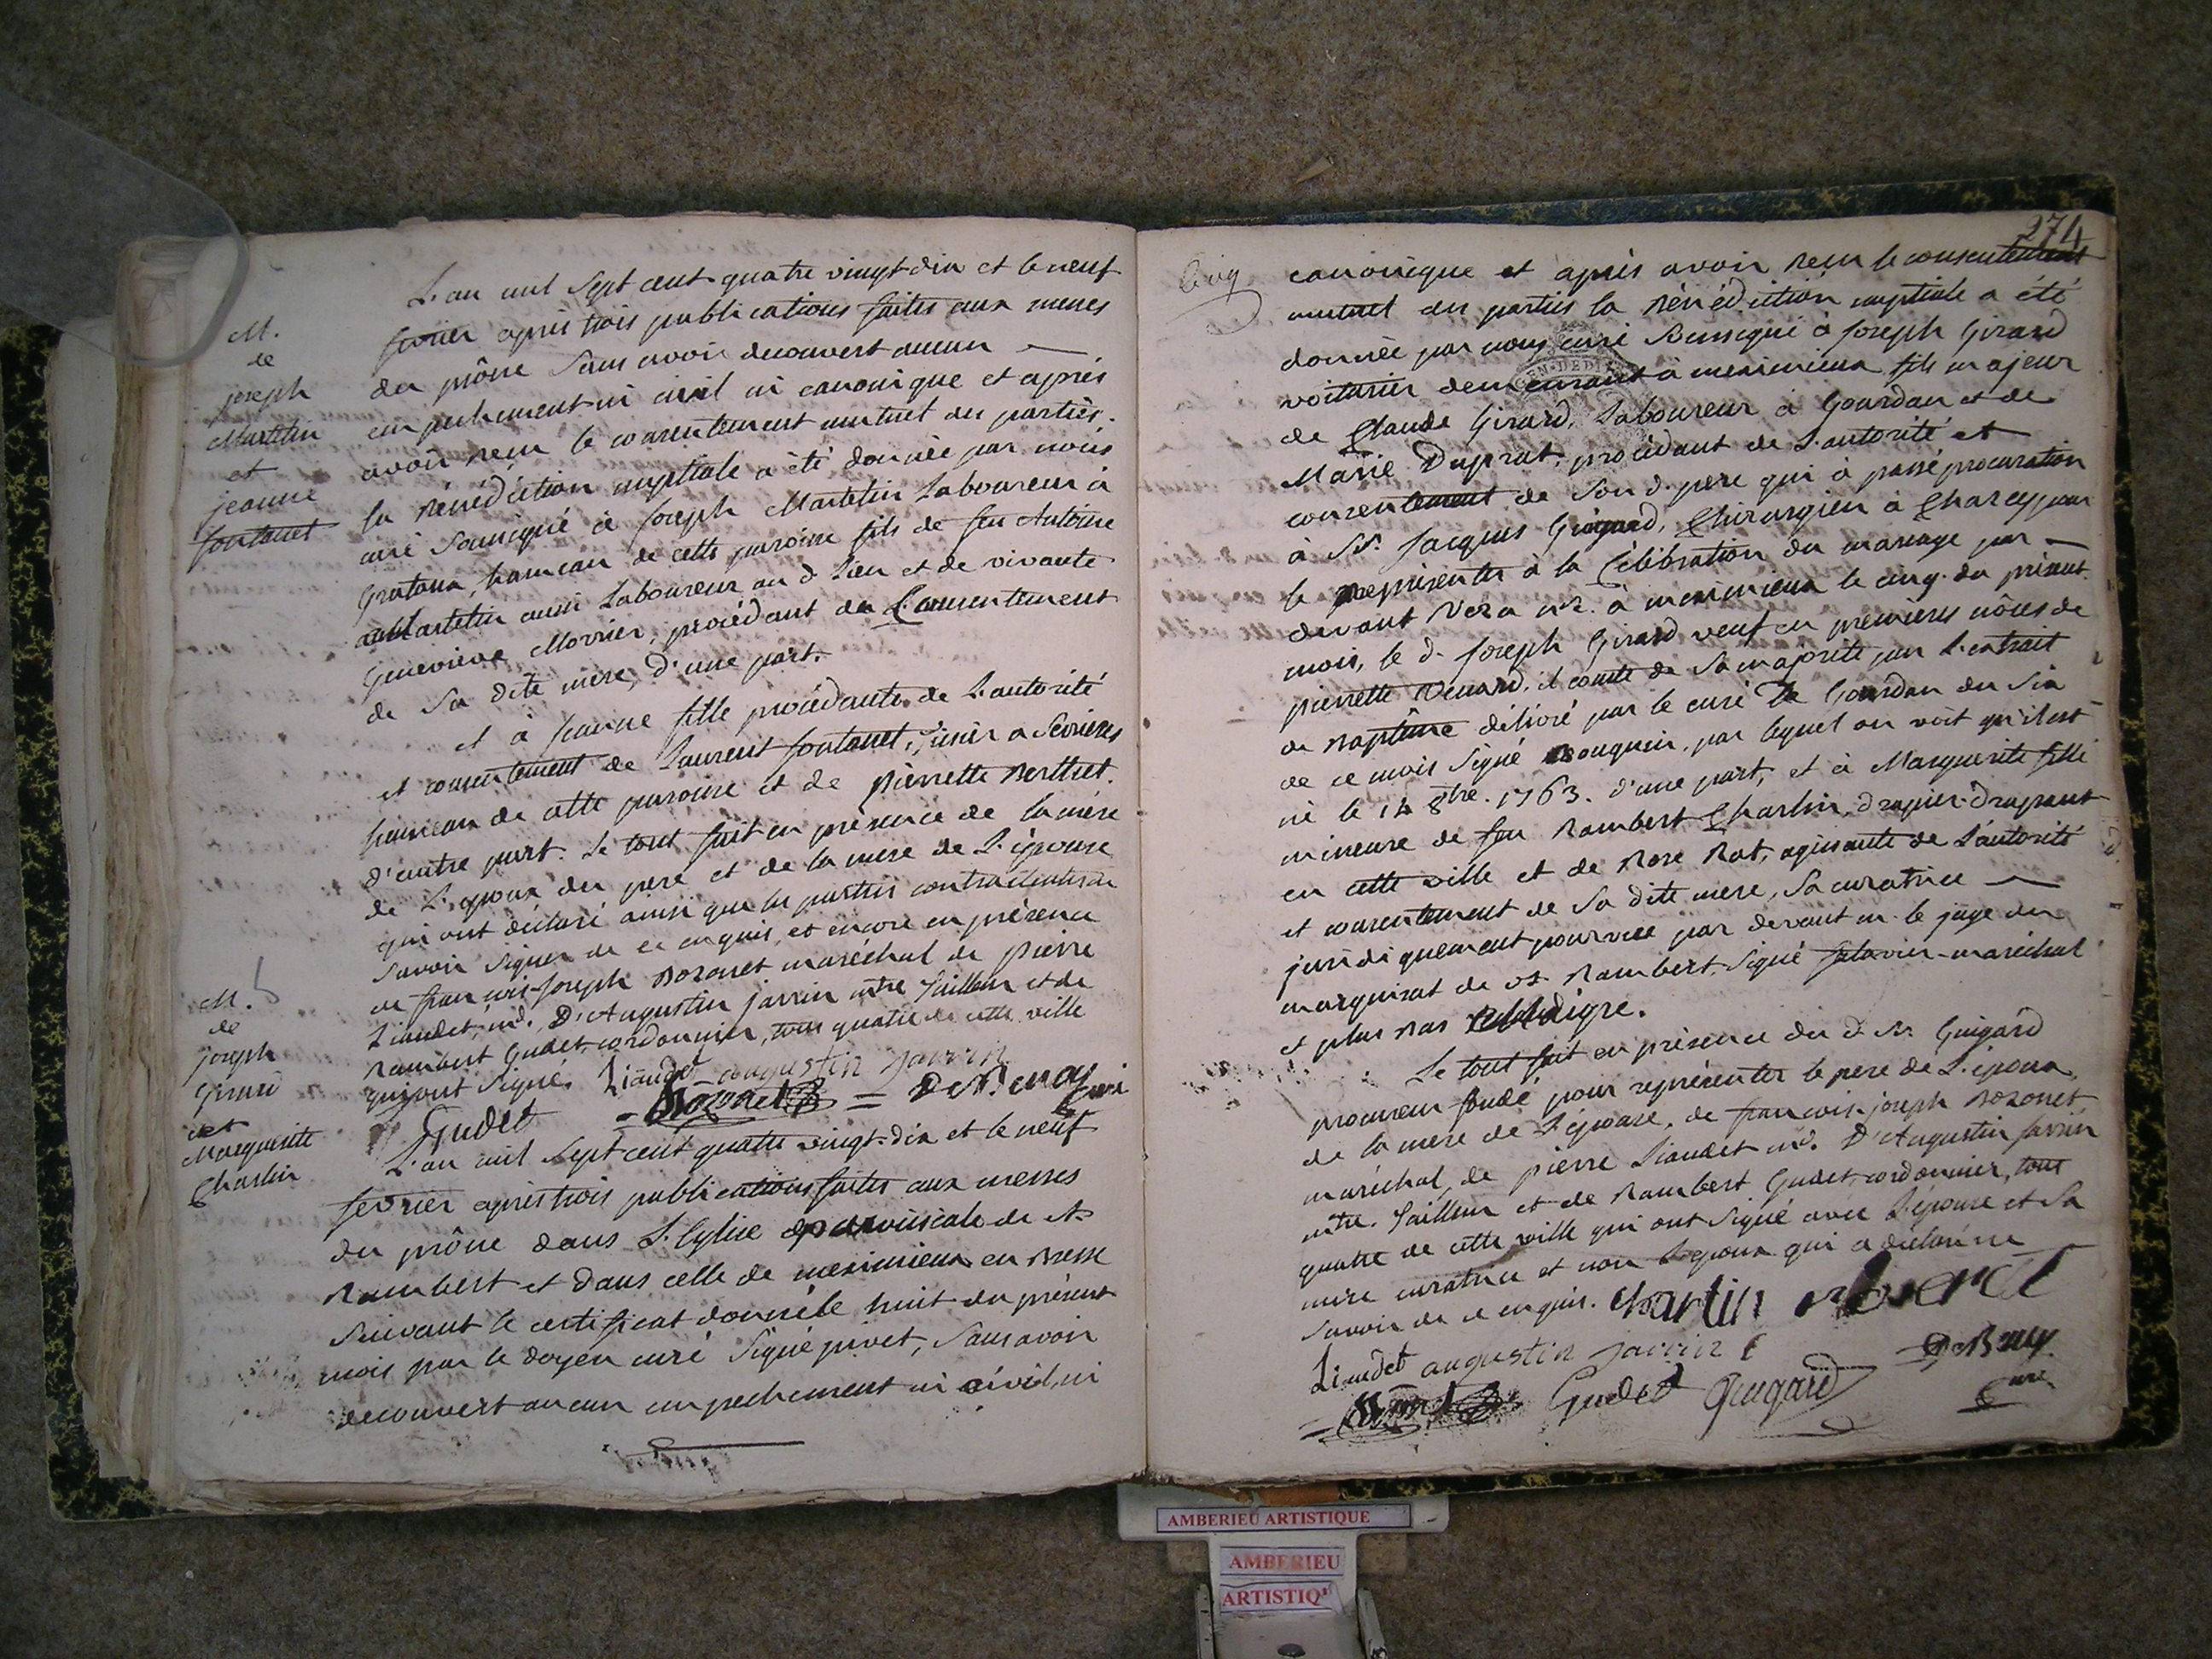 M.
de
joseph
Martelin
et
jeanne
fontanet
L'an mil sept cent quatre vingt dix et le neuf
fevrier après trois publications faites aux messes
du prône sans avoir decouvert aucun
empechement ni civil ni canonique et après
avoir reçu le consentement mutuel des parties
la bénédiction nuptiale a été donnée par nous
curé soussigné à joseph Martelin Laboureur à
Gratoux, hameau de cette paroisse fils de feu Antoine
Martelin aussi Laboureur au d. Lieu et de vivante
Geneviève Morrier, procédant du Consentement
de sa dite mère, d'une part.
et à jeanne fille procédante de L'autorité
et consentement de Laurent fontanet, à Serrieres
hameau de cette paroisse et de pierrette Berthet.
d'autre part. Le tout fait en présence de la mère
de L'epoux du pere et de la mere de L'épouse
qui ont déclaré ainsi que les parties contractantes ne
savoir signer de ce enquis, et encore en présence
de françois-joseph Bozonet maréchal de pierre
Liaudet, md. D'Augustin jarrin mtre tailleur et de
Rambert Gudet, cordonnier, tous quatre de cette ville
qui ont signé. Liaudet augustin jarrin
Gudet = Bozonet = DeBenay Curé
M.
de
joseph
Girard
et
Marguerite
Charlin
L'an mil sept cent quatre vingt-dix et le neuf
fevrier après trois publications faites aux messes
du prône dans L'Eglise paroissiale de st
Rambert et dans celle de meximieux en Bresse
suivant le certificat donné le huit du présent
mois par le doyen curé signé pivet, sans avoir
decouvert aucun empechement ni civil, ni
274
canonique et après avoir reçu le consentement
mutuel des parties la bénédiction nuptiale a été
donnée par nous curé soussigné à joseph Girard
voiturier demeurant à meximieux fils majeur
de Claude Girard, Laboureur à Gourdan et de
Marie Duprat, procédant de L'autorité et
consentement de son d. pere qui à passé procuration
à Sr. jacques Guigard, Chirurgien à Charey pour
le représenter à la Célébration du mariage par
devant Vera nre. à meximieux le cinq du présent
mois, le d. joseph Girard veuf en premieres nôces de
pierrette Venard, il conste de sa majorité par L'extrait
de baptême délivré par le curé de Gourdan du six
de ce mois signé Bouquin, par lequel on voit qu'il est
né le 14 8bre. 1763. d'une part, et à Marguerite fille
mineure de feu Rambert Charlin, drapier-drapant
en cette ville et de Rose Rat, agissante de L'autorité
et consentement de sa dite mere, sa curatrice
juridiquement pourvue par devant m. le juge du
marquisat de st. Rambert. signé maréchal
et plus bas
Le tout fait en présence du d. Sr. Guigard
procureur fondé pour représenter le pere de L'époux,
de la mere de L'épouse, de francois-joseph Bozonet,
maréchal, de pierre Liaudet md. D'Augustin jarrin
mtre. tailleur et de Rambert Gudet, cordonnier, tous
quatre de cette ville qui ont signé avec L'épouse et sa
mere curatrice et non L'epoux qui a déclaré ne
savoir de ce enquis. Charlin
Liaudet augustin jarrin
Gudet Guigard
DeBenay
Curé
AMBERIEU ARTISTIQUE
AMBERIEU
ARTISTIQ